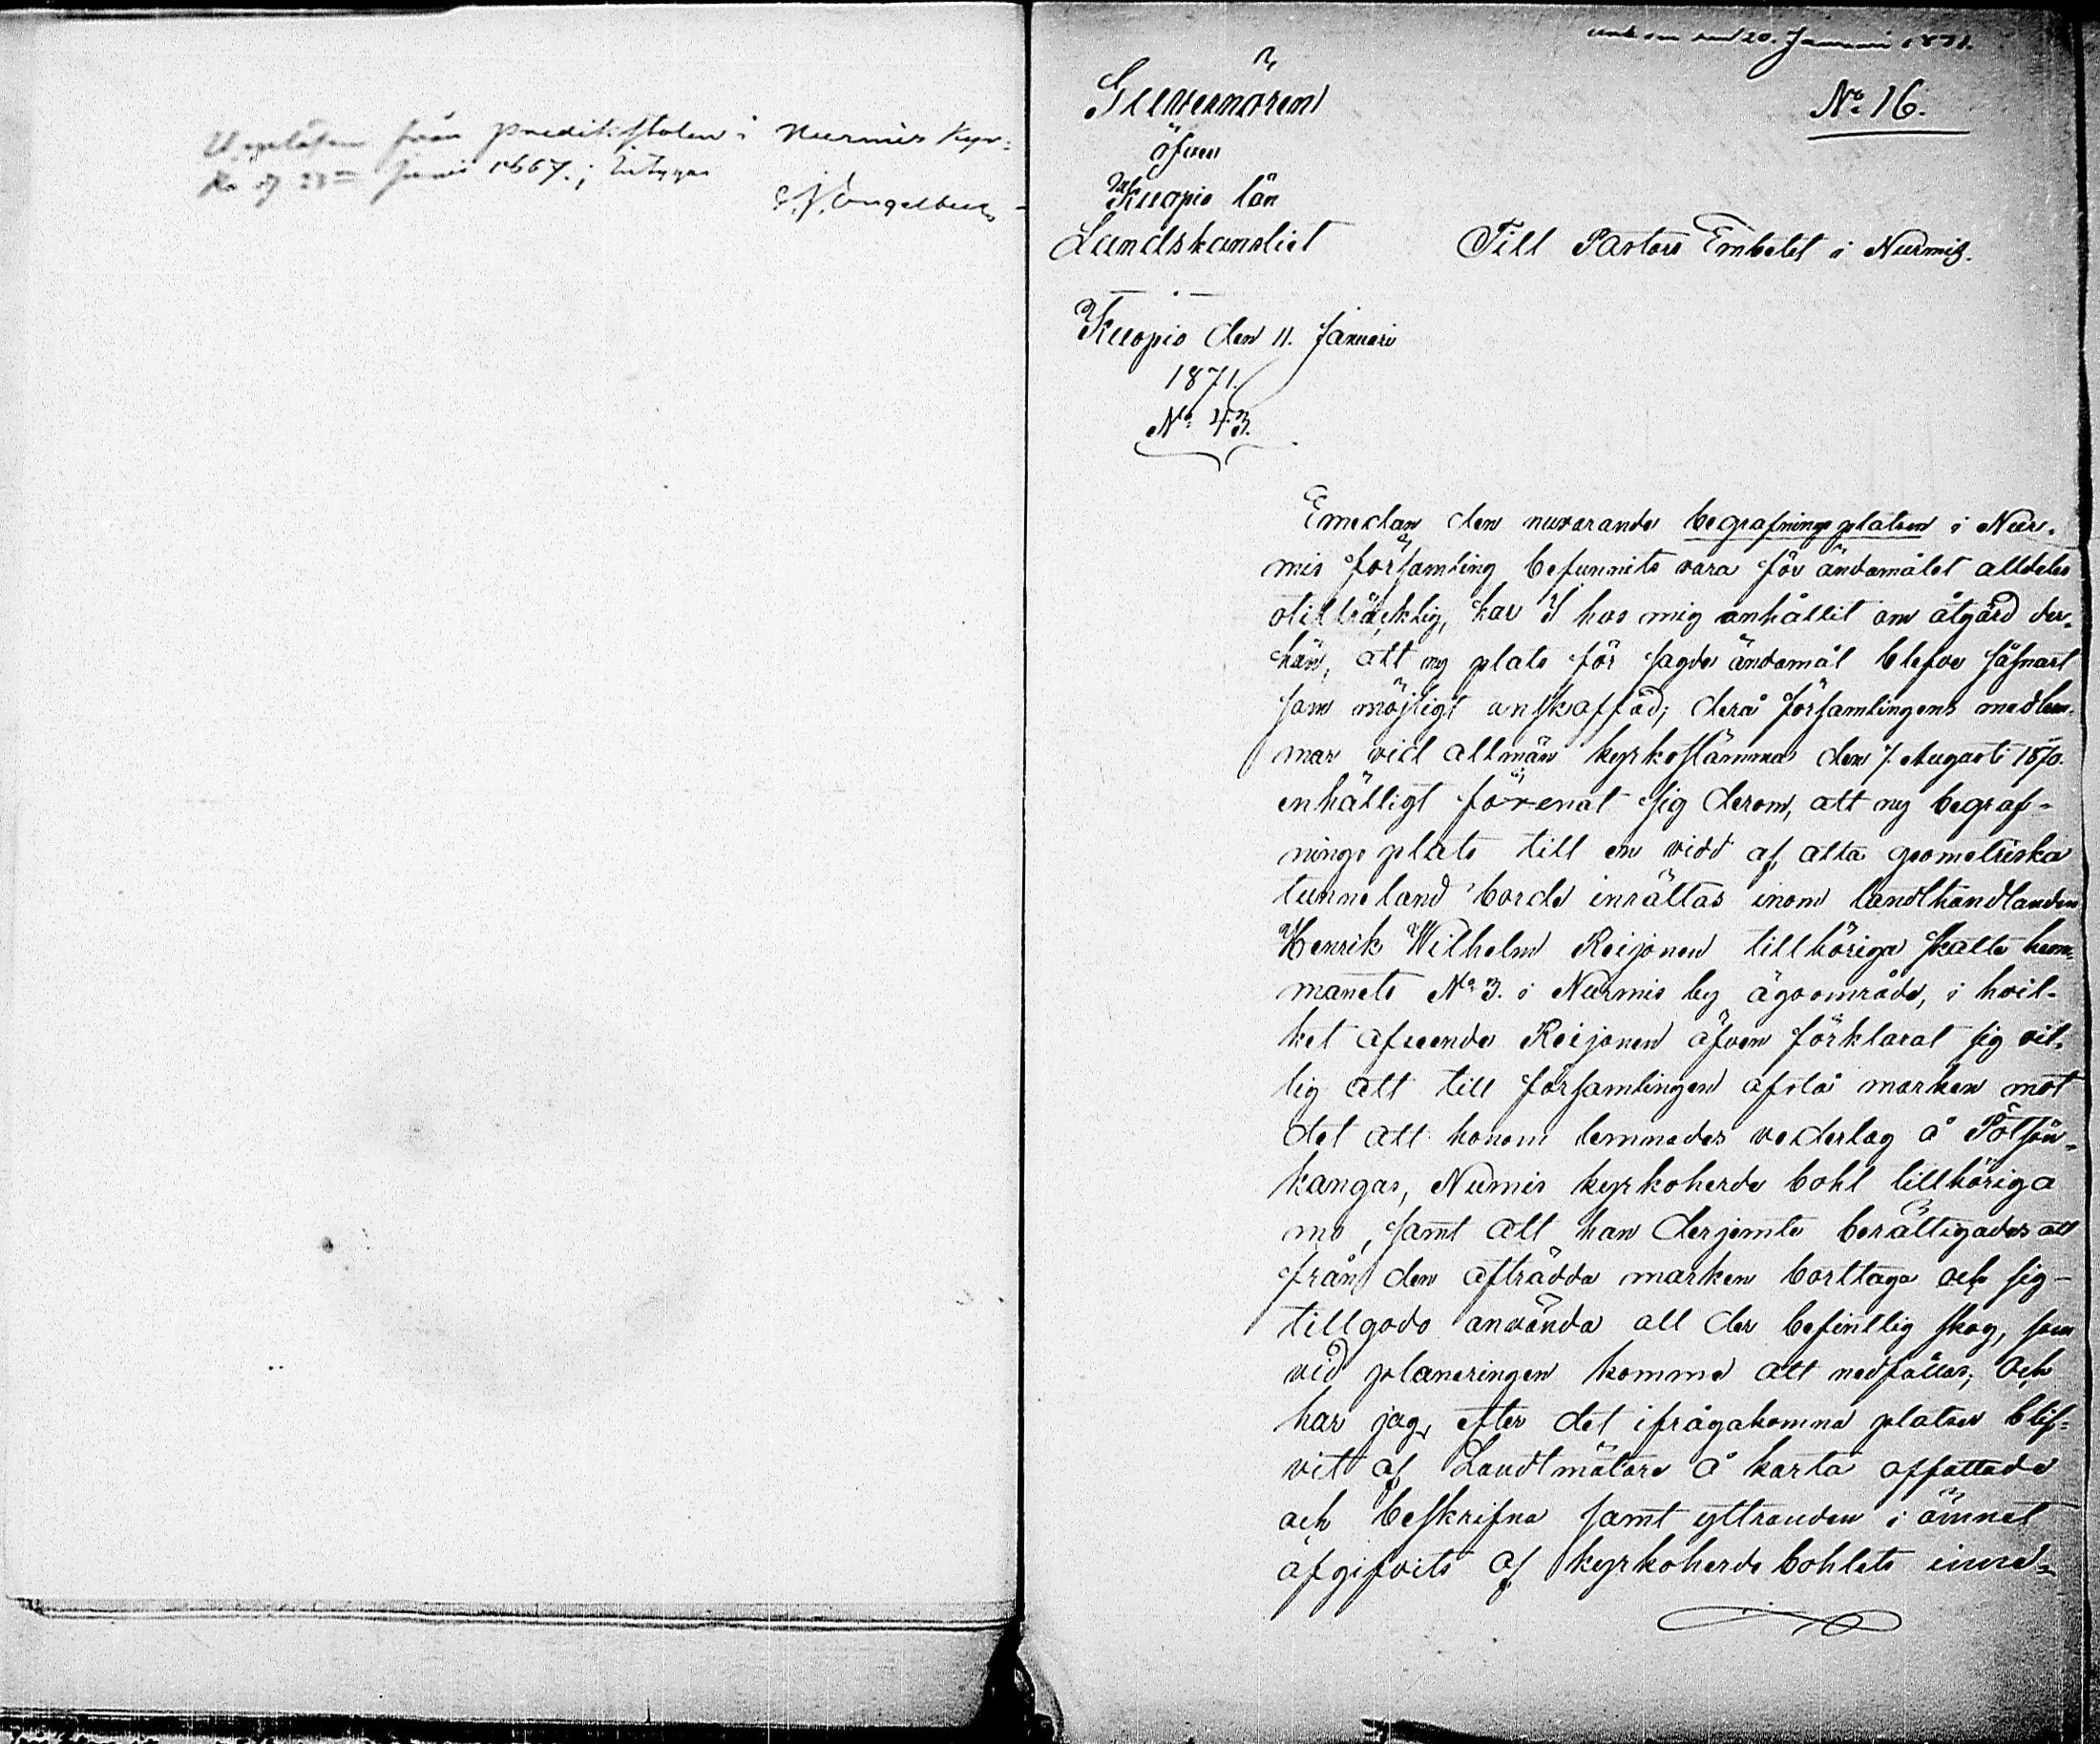 Uppläsen från predikstolen i Nurmis Kyr-
ka d 23 Juni 1667.; intygar
Engelberg
den 20. Januari 1871.
No 16.
Guvernören
öfver
Kuopio län
Landskansliet
Till Pastors Embetet i Nurmis.
Kuopio den 11. Januari
1871.
No 43.
Emedan den nuvarande begrafningsplatsen i Nur-
mis församling befunnits vara för ändamålet alldeles
otillräcklig, har I hos mig anhållit om åtgärd der-
hän, att ny plats för sagde ändamål blefve såsnart
som möjligt anskaffad; derå församlingens medlem-
mar vid allmän kyrkostämma den 7. Augusti 1870.
enhälligt förenat sig derom, att ny begraf-
nings plats till en vidd af åtta geometriska
tunneland borde inrättas inom landthandlanden
Henrik Wilhelm Reijonen tillhöriga skatte hem-
manets No 3. i Nurmis by ägoområde, i hvil-
ket afseende Reijonen äfven förklarat sig vil-
lig att till församlingen afstå marken mot
det att honom lemnades vederlag å Pötsön-
kangas, Nurmis kyrkoherde bohl tillhöriga
mo, samt att han derjemte berättigades att
från den afträdda marken borttaga och sig
tillgodo använda all der befintlig skog, som
vid planeringen komme att nedfällas; och
har jag, efter det ifrågakomna platser blif-
vit af Landtmätare å karta affattade
och beskrifna samt yttranden i ämnet
afgifvits af kyrkoherde bohlets inne-